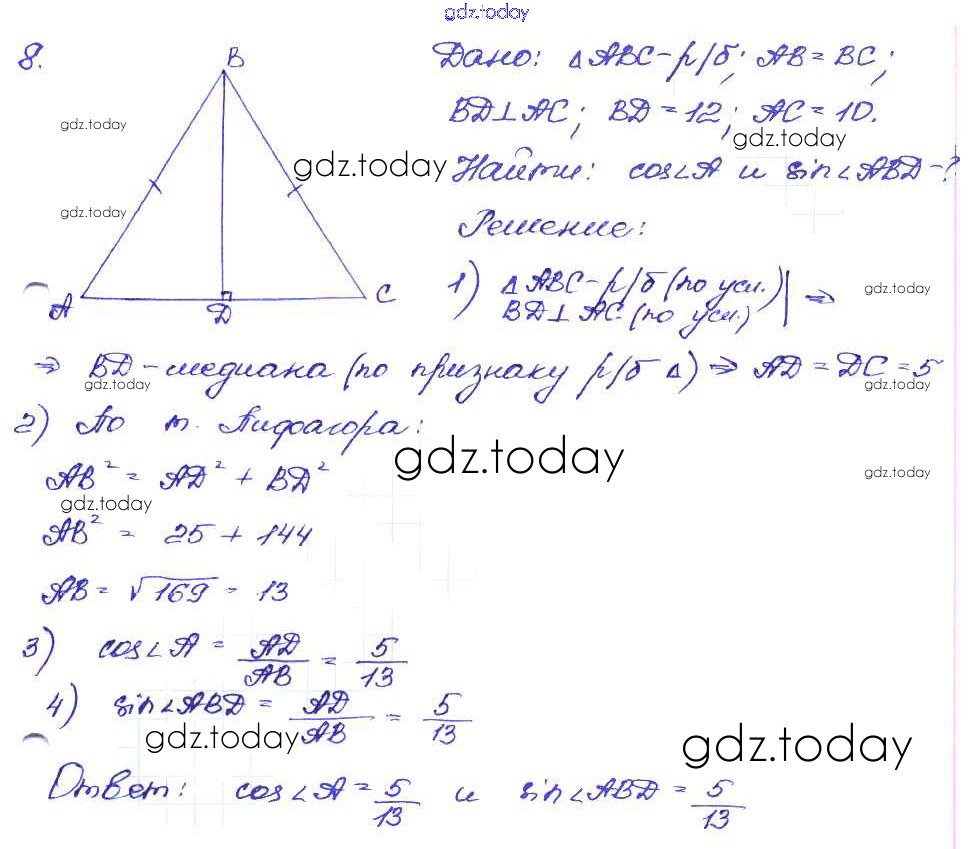 gdz.today
8.
B
Дано: △ABC - р/б; AB = BC;
gdz.today
BD⊥AC; BD = 12; AC = 10.
gdz.today
gdz.today
Найти: cos∠A и sin∠ABD - ?
gdz.today
Решение:
A D C
1) △ABC - р/б (по усл.)
BD⊥AC (по усл.) | ⇒
gdz.today
⇒ BD - медиана (по признаку р/б △) ⇒ AD = DC = 5
gdz.today
gdz.today
2) По т. Пифагора:
gdz.today
AB² = AD² + BD²
gdz.today
gdz.today
AB² = 25 + 144
AB = √169 = 13
3) cos∠A = AD/AB = 5/13
4) sin∠ABD = AD/AB = 5/13
gdz.today
gdz.today
Ответ: cos∠A = 5/13 и sin∠ABD = 5/13